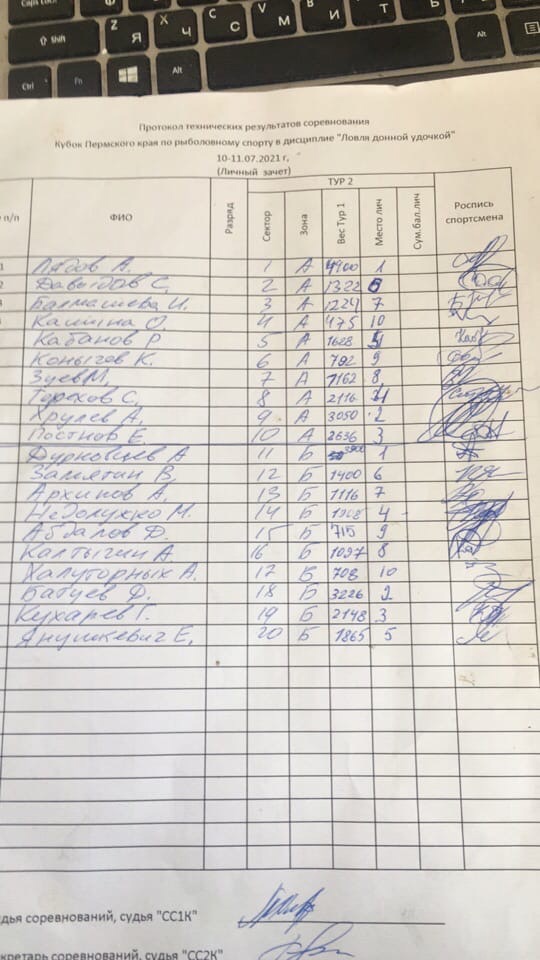 Caps Lock
Shift Z Я X Ч C С V М B И N Т Ь Alt
Ctrl Fn Alt
Протокол технических результатов соревнования
Кубок Пермского края по рыболовному спорту в дисциплие "Ловля донной удочкой"
10-11.07.2021 г,
(Личный зачет)
п/п ФИО Разряд ТУР 2 Роспись спортсмена
Сектор Зона Вес Тур 1 Место лич Сум.бал.лич
1 А. 1 А 4900 1
2 Давыдов С. 2 А 1322 6
Балмашева И. 3 А 1224 7
Калина О. 4 А 475 10
Кабанов Р 5 А 1628 5
Конычев К. 6 А 792 9
Зуев М, 7 А 1162 8
Горохов С, 8 А 2116 4
Хрулев А, 9 А 3050 2
Постнов Е. 10 А 2636 3
А 11 Б 1
Замятин В, 12 Б 1400 6
Архипов А, 13 Б 1116 7
Недолужко М. 14 Б 4
Абдалов Д. 15 Б 715 9
Калтыгин А. 16 Б 1097 8
Халуторных А. 17 Б 708 10
Батуев Ф. 18 Б 3226 2
Кухарев Г. 19 Б 2148 3
Янушкевич Е, 20 Б 1865 5
дья соревнований, судья "СС1К"
кретарь соревнований, судья "СС2К"